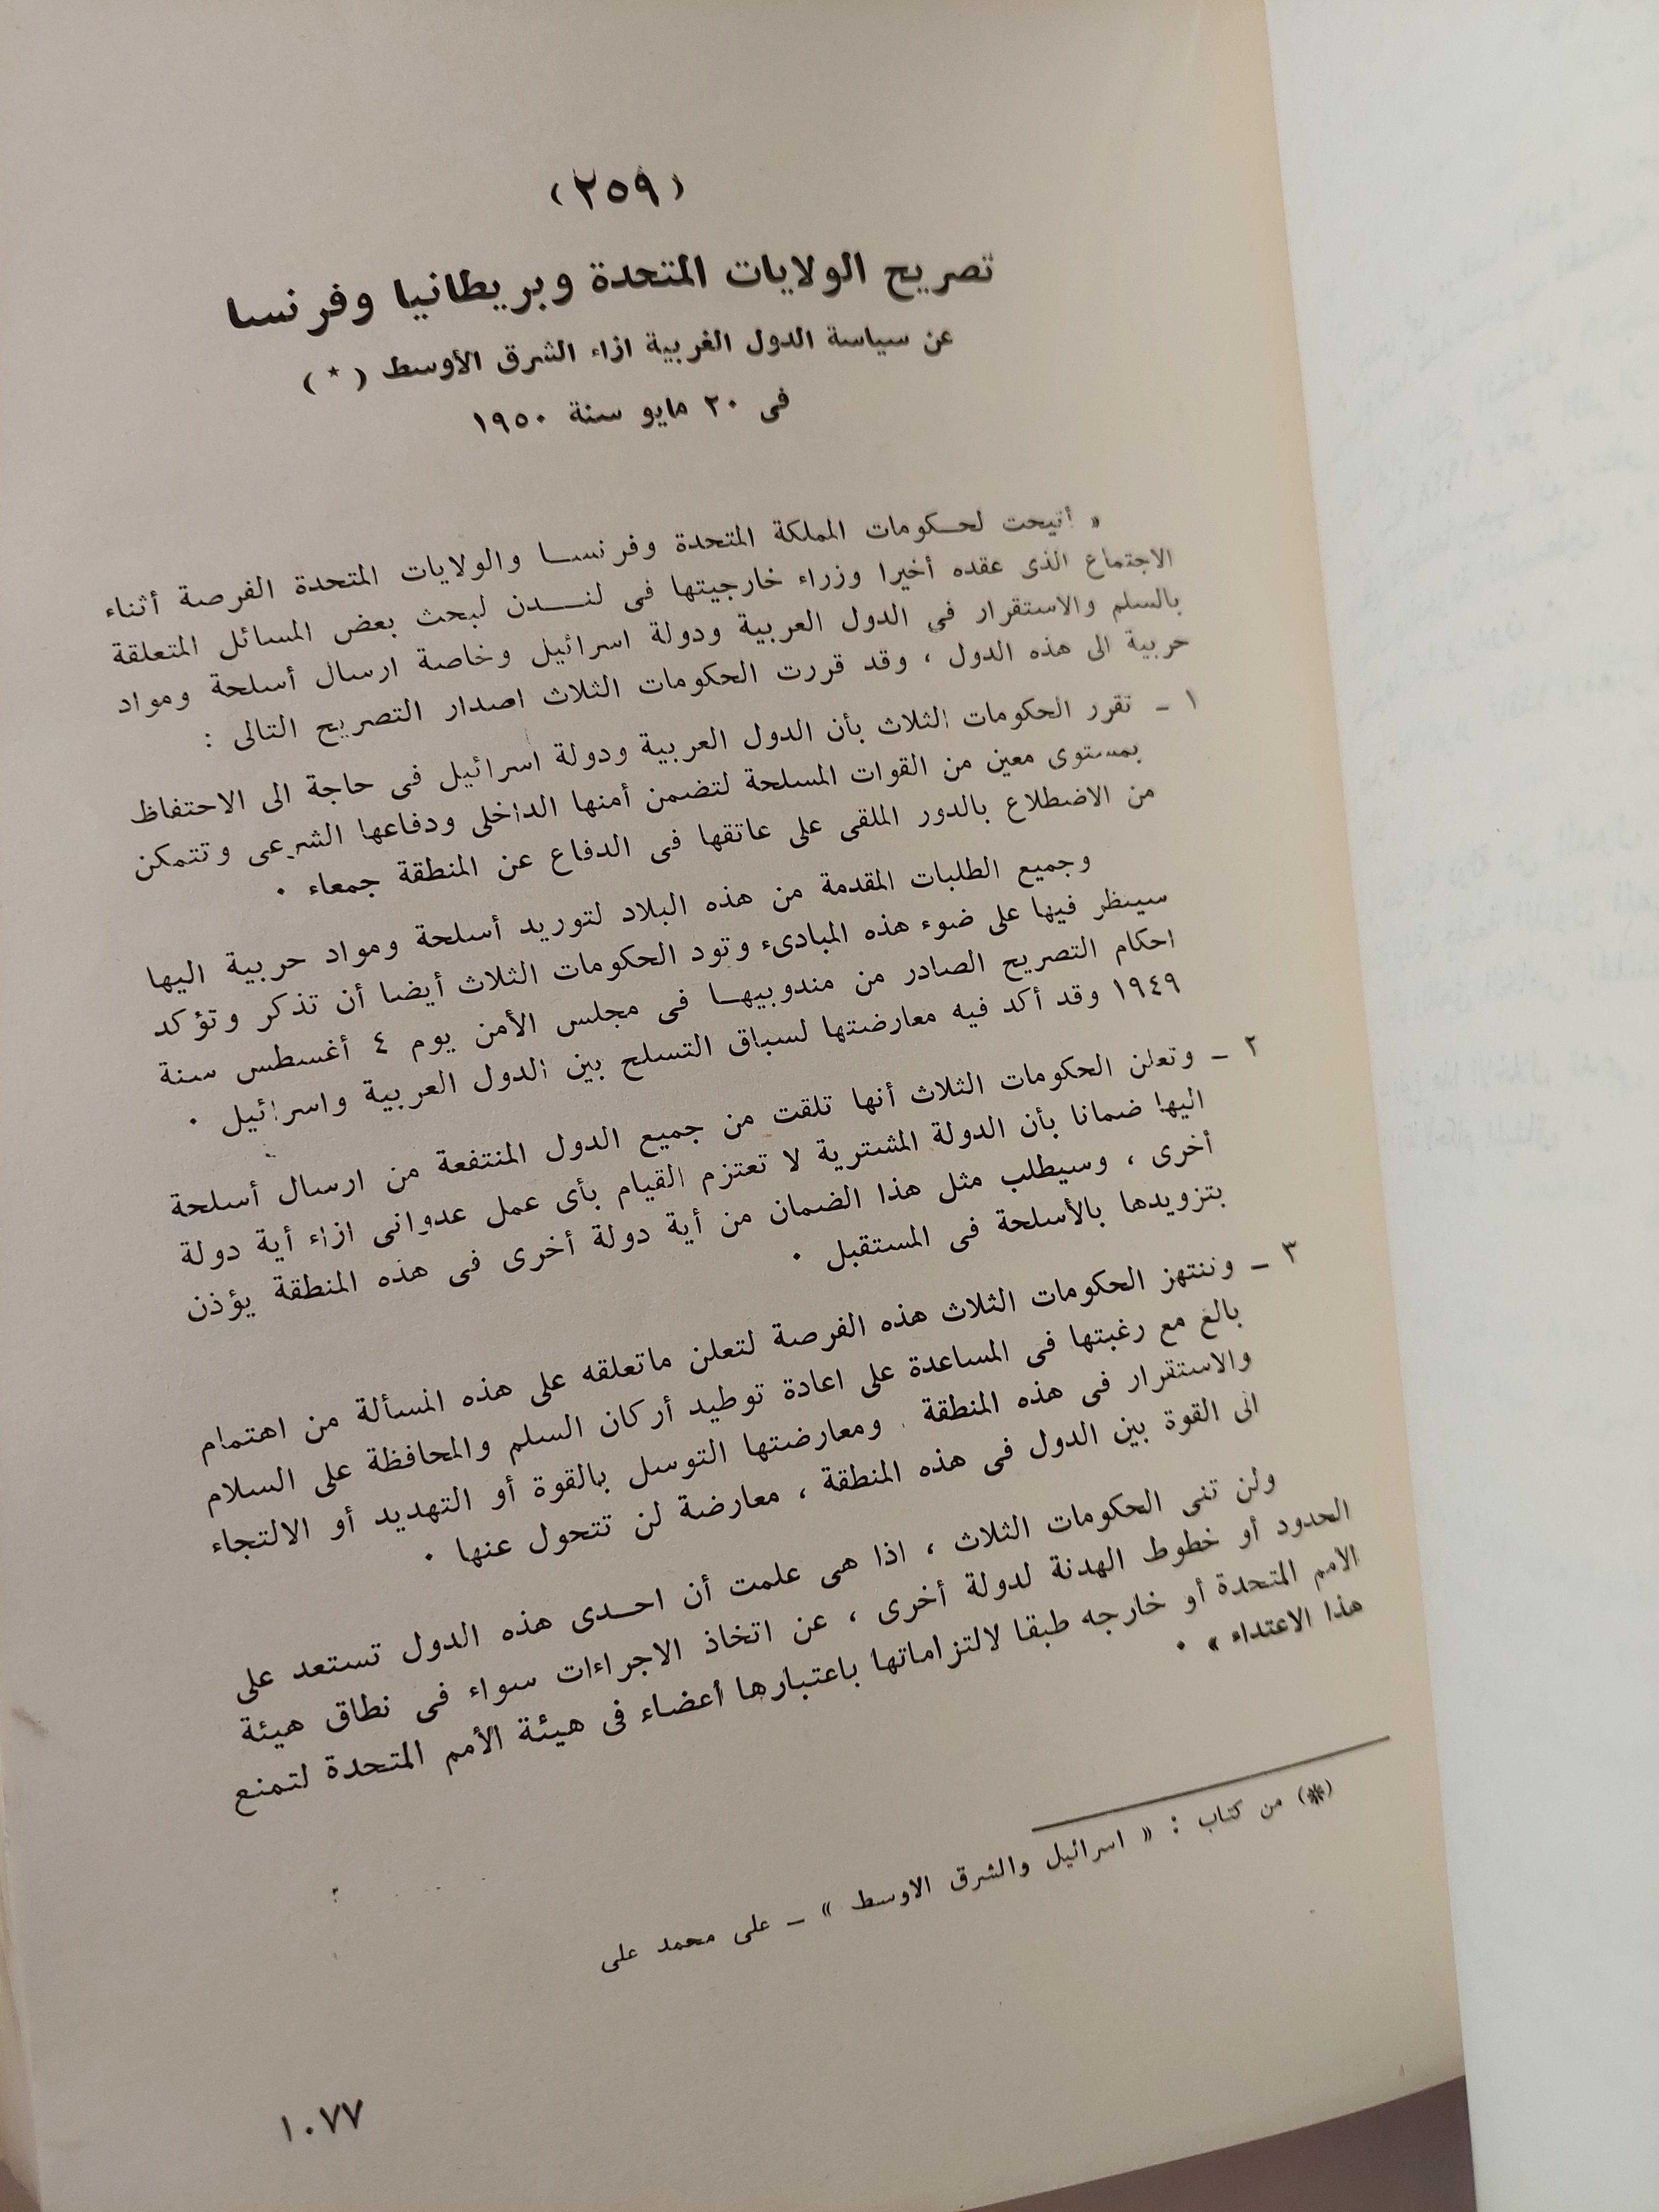 (٢٥٩)
تصريح الولايات المتحدة وبريطانيا وفرنسا
عن سياسة الدول الغربية ازاء الشرق الأوسط (*)
فى ٢٠ مايو سنة ١٩٥٠
« أتيحت لحكومات المملكة المتحدة وفرنسا والولايات المتحدة الفرصة أثناء
الاجتماع الذى عقده أخيرا وزراء خارجيتها فى لندن لبحث بعض المسائل المتعلقة
بالسلم والاستقرار فى الدول العربية ودولة اسرائيل وخاصة ارسال أسلحة ومواد
حربية الى هذه الدول ، وقد قررت الحكومات الثلاث اصدار التصريح التالى :
١ ـ تقرر الحكومات الثلاث بأن الدول العربية ودولة اسرائيل فى حاجة الى الاحتفاظ
بمستوى معين من القوات المسلحة لتضمن أمنها الداخلى ودفاعها الشرعى وتتمكن
من الاضطلاع بالدور الملقى على عاتقها فى الدفاع عن المنطقة جمعاء .
وجميع الطلبات المقدمة من هذه البلاد لتوريد أسلحة ومواد حربية اليها
سينظر فيها على ضوء هذه المبادىء وتود الحكومات الثلاث أيضا أن تذكر وتؤكد
احكام التصريح الصادر من مندوبيها فى مجلس الأمن يوم ٤ أغسطس سنة
١٩٤٩ وقد أكد فيه معارضتها لسباق التسلح بين الدول العربية واسرائيل .
٢ ـ وتعلن الحكومات الثلاث أنها تلقت من جميع الدول المنتفعة من ارسال أسلحة
اليها ضمانا بأن الدولة المشترية لا تعتزم القيام بأى عمل عدوانى ازاء أية دولة
أخرى ، وسيطلب مثل هذا الضمان من أية دولة أخرى فى هذه المنطقة يؤذن
بتزويدها بالأسلحة فى المستقبل .
٣ ـ وننتهز الحكومات الثلاث هذه الفرصة لتعلن ماتعلقه على هذه المسألة من اهتمام
بالغ مع رغبتها فى المساعدة على اعادة توطيد أركان السلم والمحافظة على السلام
والاستقرار فى هذه المنطقة . ومعارضتها التوسل بالقوة أو التهديد أو الالتجاء
الى القوة بين الدول فى هذه المنطقة ، معارضة لن تتحول عنها .
ولن تنى الحكومات الثلاث ، اذا هى علمت أن احدى هذه الدول تستعد على
الحدود أو خطوط الهدنة لدولة أخرى ، عن اتخاذ الاجراءات سواء فى نطاق هيئة
الامم المتحدة أو خارجه طبقا لالتزاماتها باعتبارها أعضاء فى هيئة الأمم المتحدة لتمنع
هذا الاعتداء » .
(*) من كتاب : « اسرائيل والشرق الاوسط » ـ على محمد على
١٠٧٧